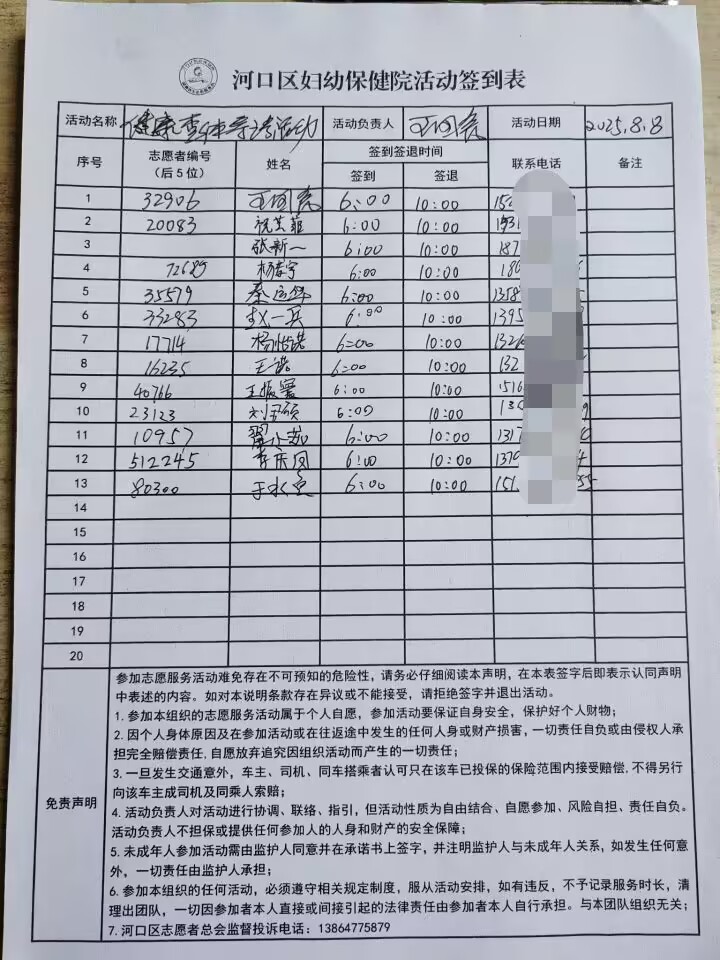 河口区妇幼保健院活动签到表
活动名称 健康查体导诊活动 活动负责人 王向亮 活动日期 2025.8.8
序号 志愿者编号（后5位） 姓名 签到签退时间 联系电话 备注
签到 签退
1 32906 6:00 10:00
2 20083 祝英菲 6:00 10:00
3 张新一 6:00 10:00 187
4 72685 6:00 10:00
5 35579 秦 6:00 10:00 1358
6 33283 赵一兵 6:00 10:00 1395
7 17714 杨怡诺 6:00 10:00 132
8 16235 王诺 6:00 10:00 132
9 40766 王振 6:00 10:00 1516
10 23123 刘 6:00 10:00
11 10957 翟小苏 6:00 10:00 1317
12 512245 李庆凤 6:00 10:00 1370
13 80300 于水 6:00 10:00 151
14
15
16
17
18
19
20
免责声明
参加志愿服务活动难免存在不可预知的危险性，请务必仔细阅读本声明，在本表签字后即表示认同声明
中表述的内容。如对本说明条款存在异议或不能接受，请拒绝签字并退出活动。
1. 参加本组织的志愿服务活动属于个人自愿，参加活动要保证自身安全，保护好个人财物；
2. 因个人身体原因及在参加活动或在往返途中发生的任何人身或财产损害，一切责任自负或由侵权人承
担完全赔偿责任，自愿放弃追究因组织活动而产生的一切责任；
3. 一旦发生交通意外，车主、司机、同车搭乘者认可只在该车已投保的保险范围内接受赔偿，不得另行
向该车主或司机及同乘人索赔；
4. 活动负责人对活动进行协调、联络、指引，但活动性质为自由结合、自愿参加、风险自担、责任自负。
活动负责人不担保或提供任何参加人的人身和财产的安全保障；
5. 未成年人参加活动需由监护人同意并在承诺书上签字，并注明监护人与未成年人关系，如发生任何意
外，一切责任由监护人承担；
6. 参加本组织的任何活动，必须遵守相关规定制度，服从活动安排，如有违反，不予记录服务时长，清
理出团队，一切因参加者本人直接或间接引起的法律责任由参加者本人自行承担。与本团队组织无关；
7. 河口区志愿者总会监督投诉电话：13864775879